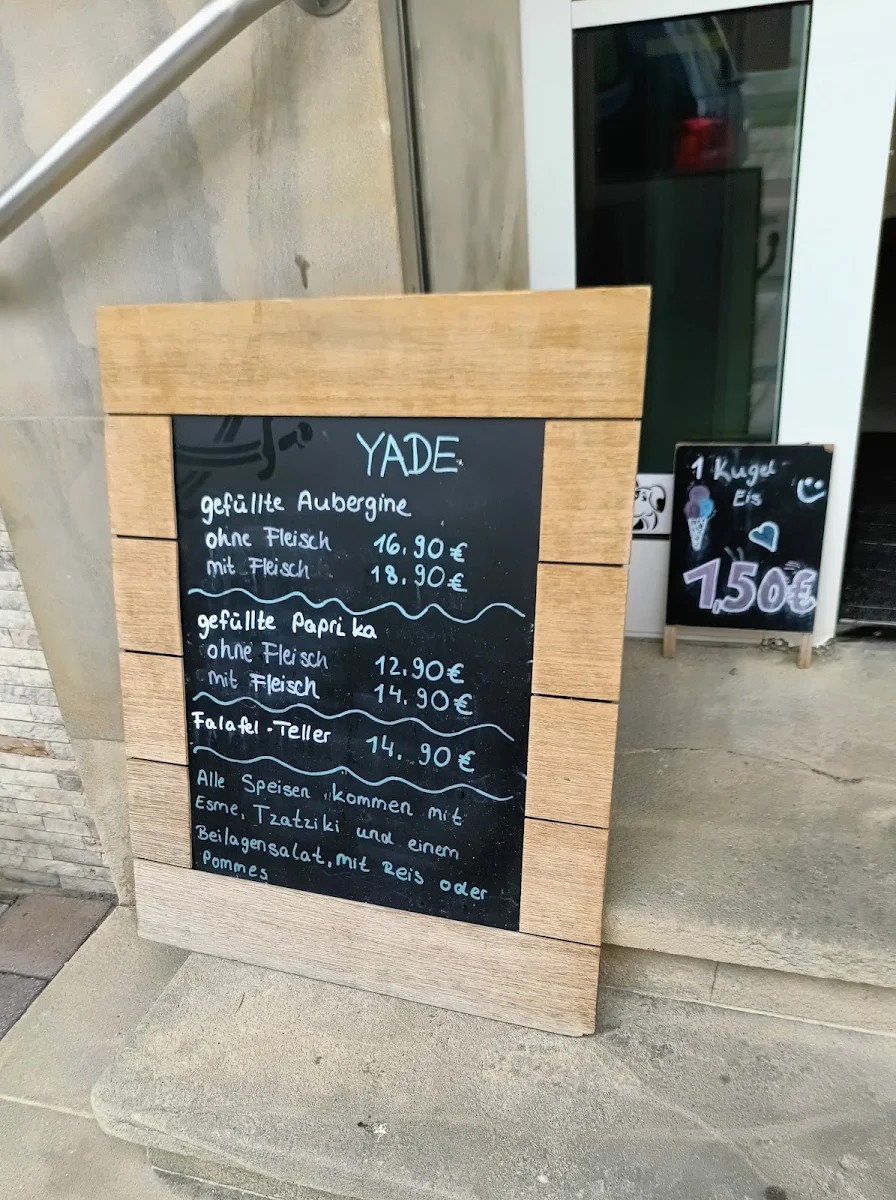 YADE
gefüllte Aubergine
ohne Fleisch 16.90€
mit Fleisch 18.90€
gefüllte Paprika
ohne Fleisch 12.90€
mit Fleisch 14.90€
Falafel-Teller 14.90€
Alle Speisen kommen mit
Esme, Tzatziki und einem
Beilagensalat, mit Reis oder
Pommes
1 Kugel
Eis
1,50€